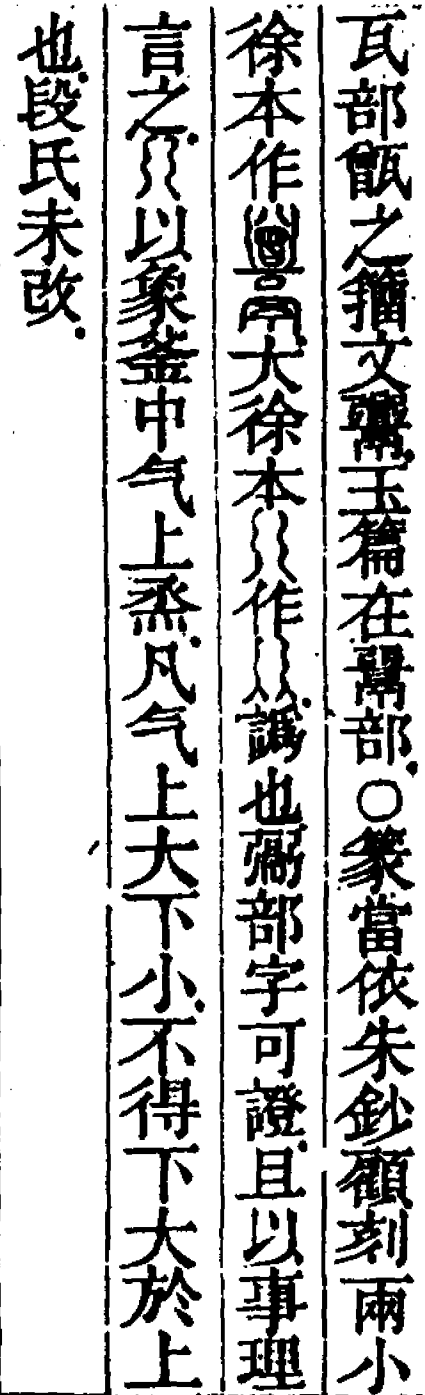 瓦部甑之籒文䰝玉篇在鬻部○篆當依朱鈔顧刻兩小
徐本作大徐本作譌也䰜部字可證且以事理
言之以象釜中气上烝凡气上大下小不得下大於上
也段氏未改